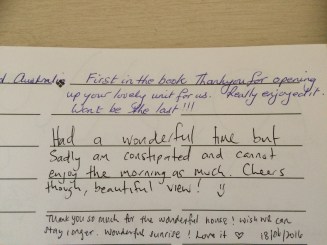 Australia First in the book Thankyou for opening
up your lovely unit for us. Really enjoyed it.
Won't be the last!!!
Had a wonderful time but
Sadly am constipated and cannot
enjoy the morning as much. Cheers
though, beautiful view!
Thank you so much for the wonderful house! wish we can
stay longer. Wonderful sunrise! Love it ♡ 18/06/2016